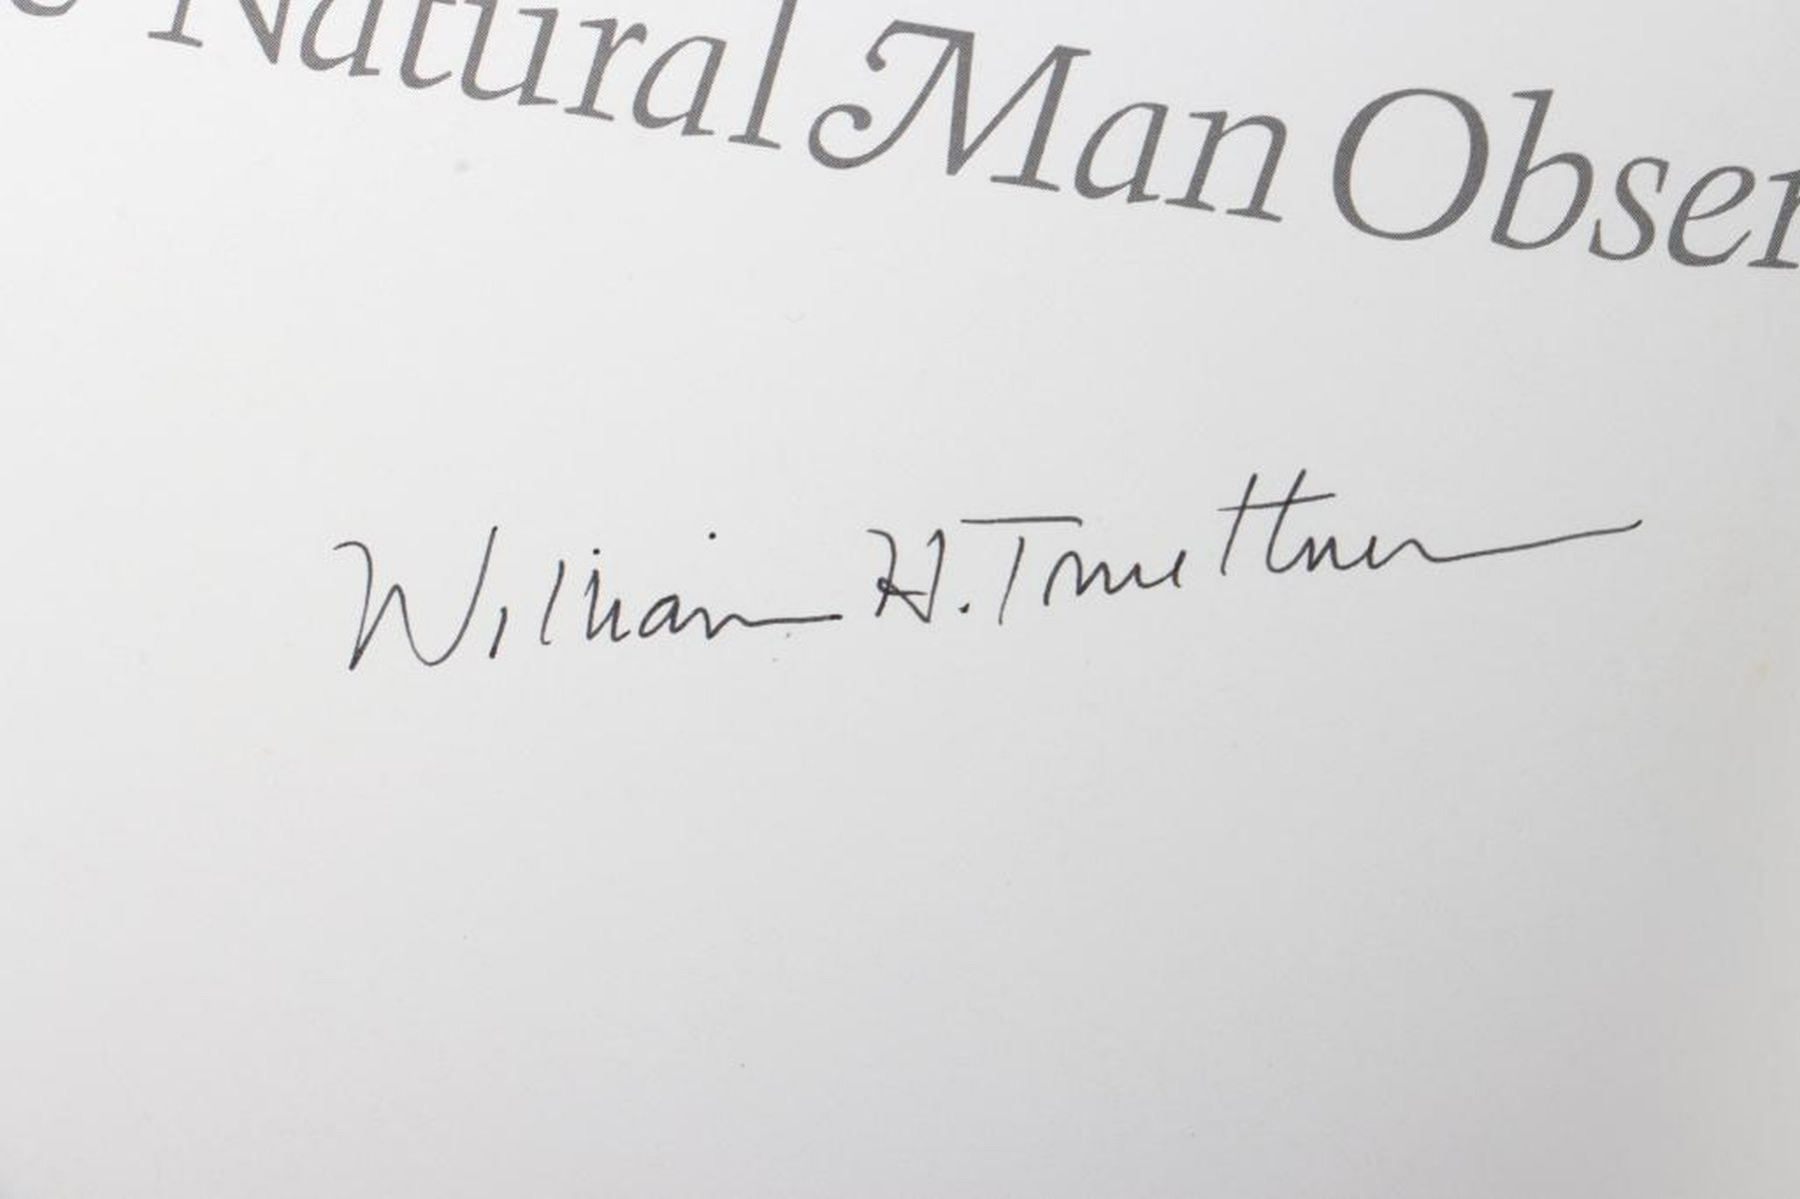 Natural Man Obser
William H. Truettner